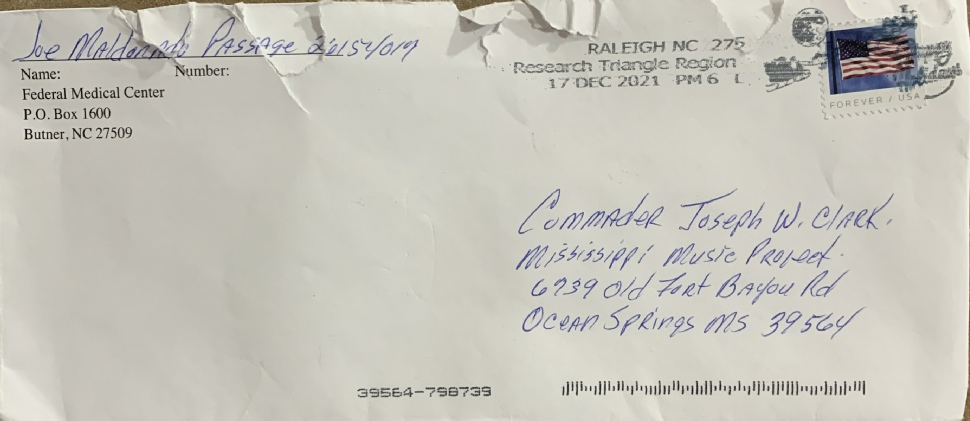 Joe Maldonado Passage 26154017
Name: Number:
Federal Medical Center
P.O. Box 1600
Butner, NC 27509
RALEIGH NC 275
Research Triangle Region
17 DEC 2021 PM 6 L
FOREVER / USA
Commader Joseph W. Clark.
Mississippi Music Project.
6739 Old Fort Bayou Rd
Ocean Springs MS 39564
39564-798739